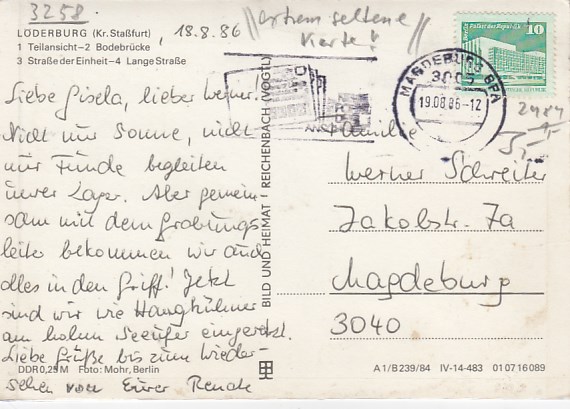 3258.
LODERBURG (Kr. Staßfurt)
18.8.86
"extrem seltene
Karte!"
1 Teilansicht–2 Bodebrücke
3 Straße der Einheit–4 Lange Straße
Liebe Gisela, lieber Werner.
Nicht nur Sonne, nicht
nur Funde begleiten
unser Lager. Aber gemein-
sam mit dem Grabungs-
leiter bekommen wir auch
alles in den Griff! Jetzt
sind wir wie Haughühner
am hohen Seeufer eingeretzt.
Liebe Grüße bis zum Wieder-
sehen von Eurer Renate
DDR 0,25 M Foto: Mohr, Berlin
BILD UND HEIMAT REICHENBACH (VOGTL)
10
MAGDEBURG BPA
3005
19.08.86-12
2984
Familie
Werner Schreiter
Jakobstr. 7a
Magdeburg
3040
A 1/B 239/84 IV-14-483 01 07 16 089